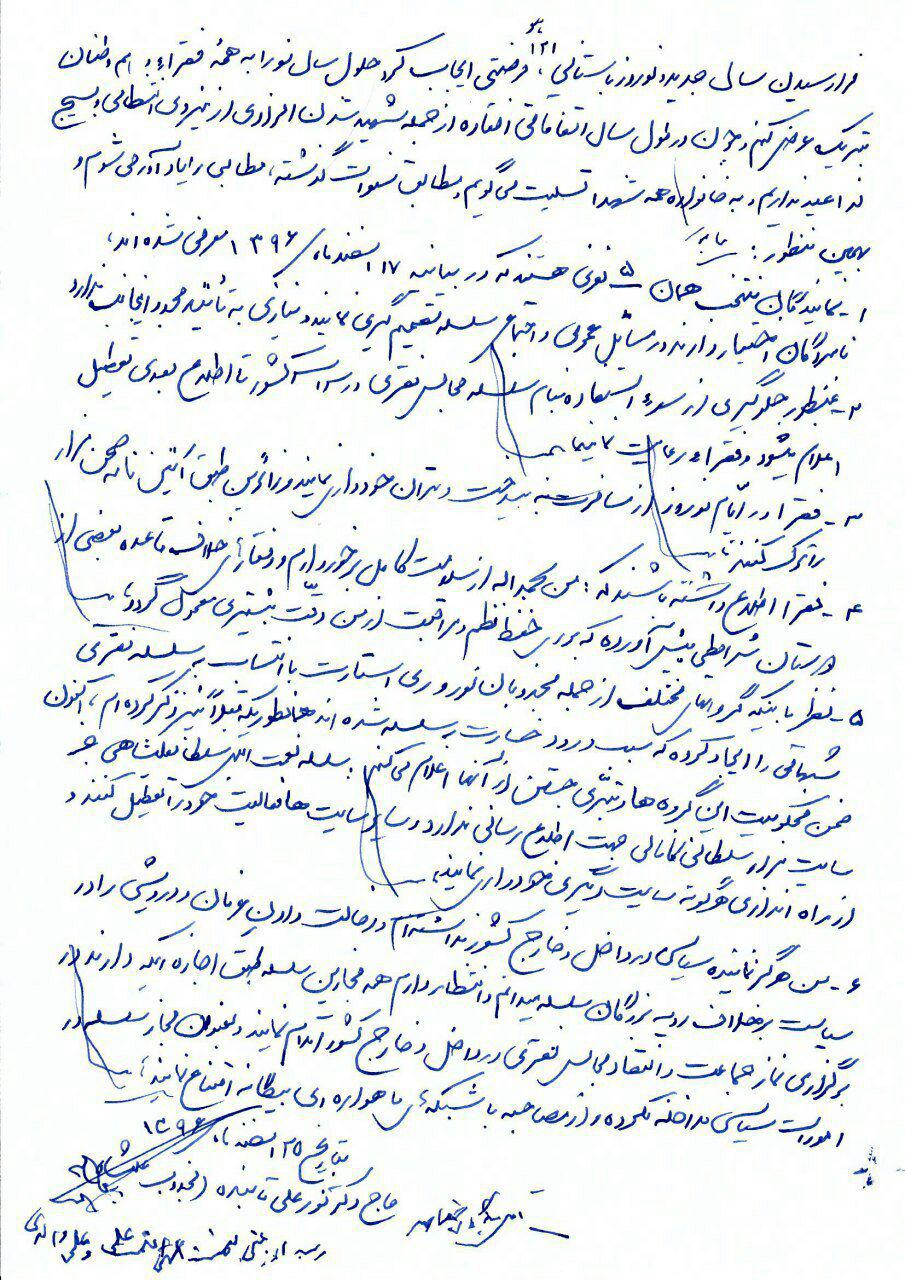 هو
۱۲۱
فرا رسیدن سال جدید و نوروز باستانی، فرصتی ایجاب کرد حلول سال نو را به همهٔ فقراء و هم وطنان
تبریک عرض کنم و چون در طول سال اتفاقاتی افتاده از جمله شهید شدن افرادی از نیروی انتظامی و بسیج
لذا عید نداریم و به خانواده همه شهدا تسلیت می‌گویم و مطابق سنوات گذشته، مطالبی را یادآور می‌شوم و
بهمین منظور:
۱- نمایندگان منتخب همان ۵ نفری هستند که در بیانیه ۱۷ اسفند ماه ۱۳۹۶ معرفی شده‌اند،
نامبردگان اختیار دارند در مسائل عمومی و اجتماع سلسله تصمیم گیری نمایند و نیازی به تأیید مجدد اینجانب ندارد
۲- بمنظور جلوگیری از سوء استفاده بنام سلسله مجالس فقری در سراسر کشور تا اطلاع بعدی تعطیل
اعلام میشود و فقراء رعایت نمایند.
۳- فقرا در ایام نوروز از مسافرت به بیدخت و تهران خودداری نمایند و زائرین طبق آئین نامه صحن مزار
را ترک کنند.
۴- فقرا اطلاع داشته باشند که: من بحمدالله از سلامت کامل برخوردارم و رفتار خلاف قاعده بعضی از
دوستان شرایطی پیش آورده که برای حفظ نظم و مراقبت از من دقّت بیشتری معمول گردد،
۵- نظر باینکه گروههای مختلف از جمله مجذوبان نور و ری استارت با انتساب به سلسله فقری
شبهاتی را ایجاد کرده که سبب ورود خسارت به سلسله شده‌اند همانطوریکه قبلاً نیز ذکر کرده‌ام، اکنون
ضمن محکومیت این گروه‌ها و تبرّی جستن از آنها اعلام می‌کنم: سلسله نعمت اللهی سلطانعلیشاهی جز
سایت مزار سلطانی کانالی جهت اطلاع رسانی ندارد و سایر سایت ها فعالیت خود را تعطیل کنند و
از راه اندازی هرگونه سایت دیگری خودداری نمایند،
۶- من هرگز نماینده سیاسی در داخل و خارج کشور نداشته‌ام و دخالت دادن عرفان و درویشی را در
سیاست برخلاف رویه بزرگان سلسله میدانم و انتظار دارم همه مجازین سلسله طبق اجازه ایکه دارند در
برگزاری نماز جماعت و انعقاد مجالس فقری در داخل و خارج کشور اقدام نمایند و بعنوان مجاز سلسله در
امورات سیاسی مداخله نکرده و از مصاحبه با شبکه‌های ماهواره‌ای بیگانه امتناع نمایند،
بتاریخ ۲۵ اسفند ماه ۱۳۹۶
حاج دکتر نورعلی تابنده (مجذوب علیشاه)